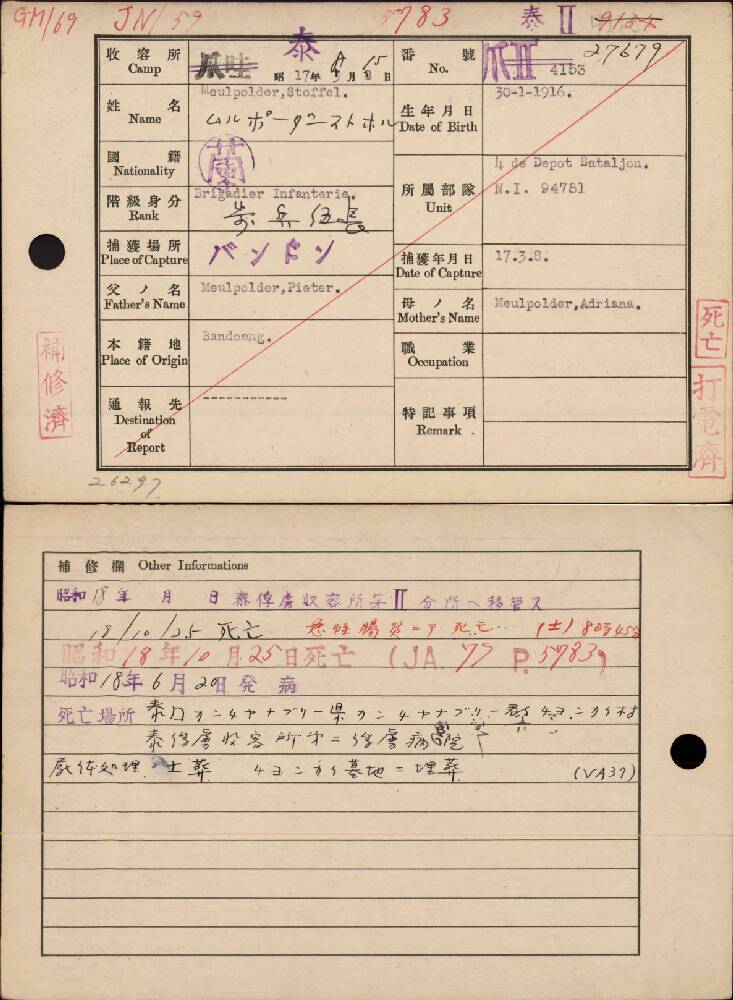 GM/69 JN/59 5783 泰 II
27679
收容所 Camp 爪哇 泰 昭 17年 8月 15日
番號 No. 爪II 4153
姓名 Name Meulpolder,Stoffel.
ムルポーダーストホル
生年月日 Date of Birth 30-1-1916.
國籍 Nationality 蘭
階級身分 Rank Brigadier Infanterie.
所屬部隊 Unit 4 de Depot Bataljon.
N.I. 94781
捕獲場所 Place of Capture バンドン
捕獲年月日 Date of Capture 17.3.8.
父ノ名 Father's Name Meulpolder,Pieter.
母ノ名 Mother's Name Meulpolder,Adriana.
本籍地 Place of Origin Bandoeng.
職業 Occupation
通報先 Destination of Report ------------
特記事項 Remark.
補修濟
死亡
打電濟
26297
補修欄 Other Informations
昭和18年 月 日 泰俘虜収容所第II分所ヘ移管ス
18/10/25 死亡 急性腸炎ニテ死亡 (土) 8時45分
昭和18年10月25日死亡 (JA. 77 P. 5783)
昭和18年6月20日発病
死亡場所 泰国カンチヤナブリー県カンチヤナブリー郡チヨンカイ村
泰俘虜収容所第二俘虜病院
屍体処理 土葬 チヨンカイ墓地ニ埋葬 (VA37)